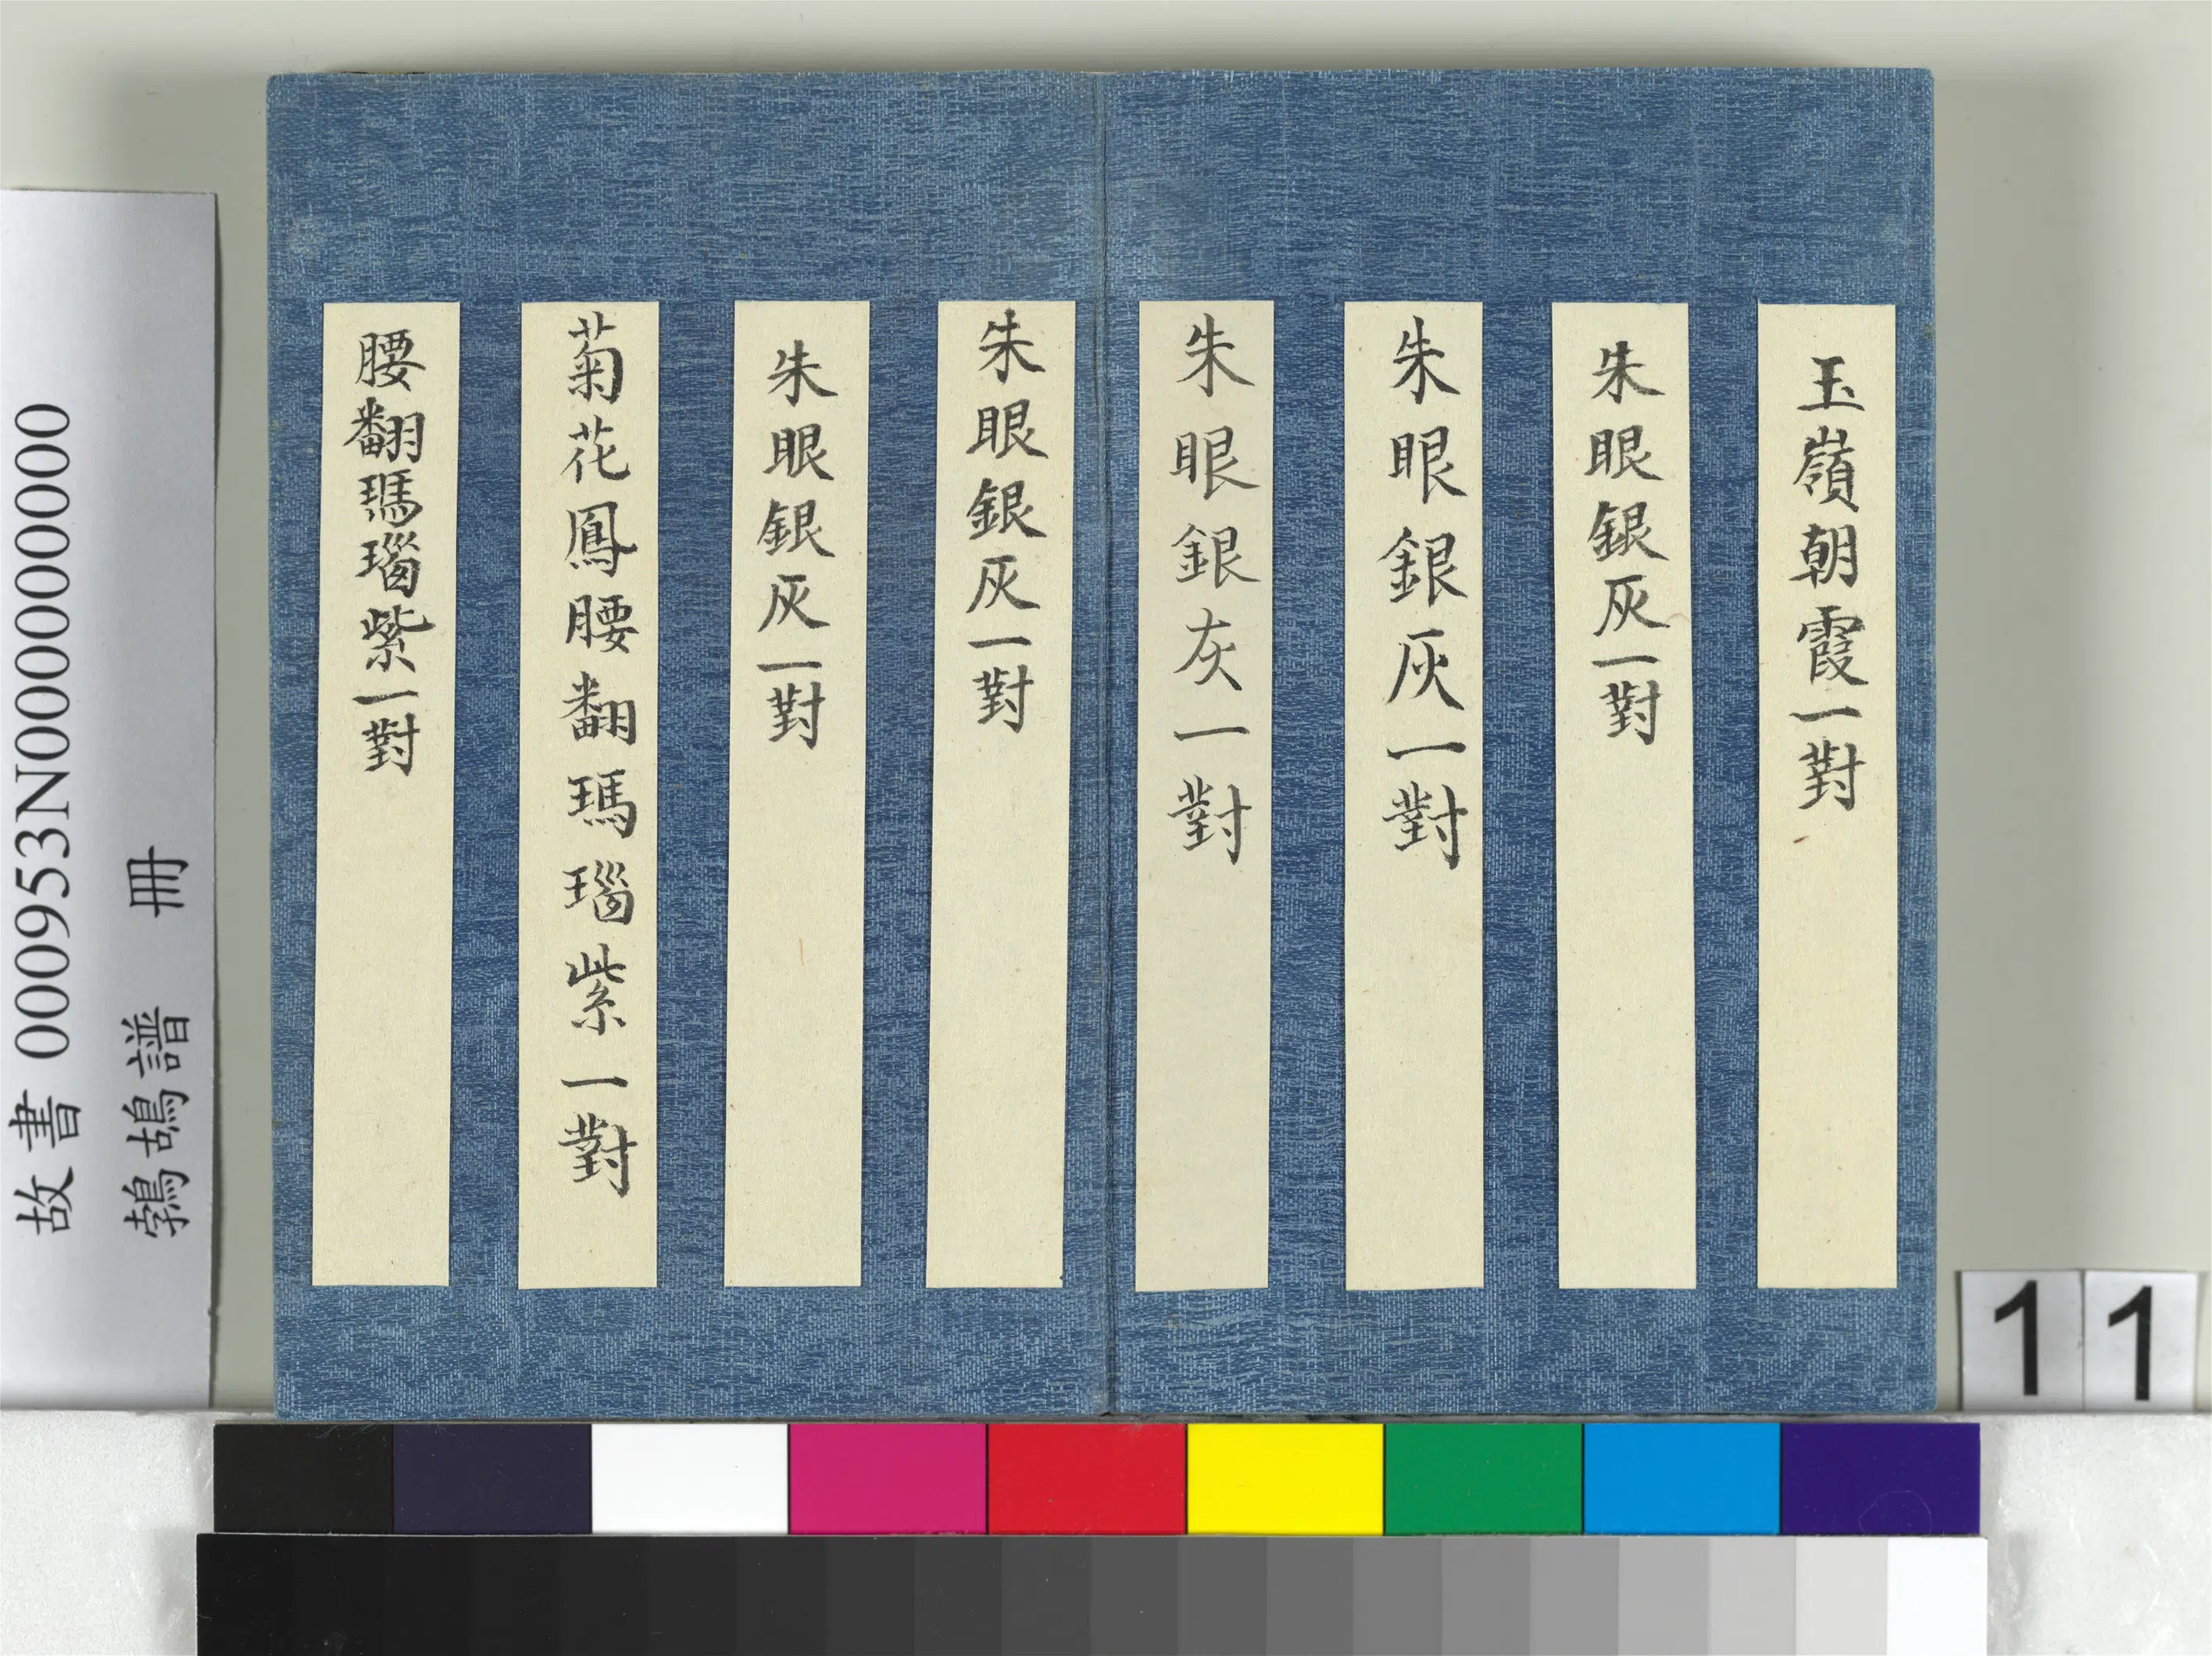 玉嶺朝霞一對
朱眼銀灰一對
朱眼銀灰一對
朱眼銀灰一對
朱眼銀灰一對
朱眼銀灰一對
菊花鳳腰翻瑪瑙紫一對
腰翻瑪瑙紫一對
故書 000953N000000000
鵓鴣譜 冊
11